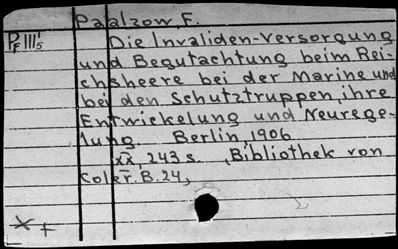 Paalzow, F.
PF III 5 Die Invaliden-Versorgung
und Begutachtung beim Rei-
chsheere bei der Marine und
bei den Schutztruppen, ihre
Entwickelung und Neurege-
lung. Berlin 1906
XX, 243 S. Bibliothek von
Coler. B. 24,